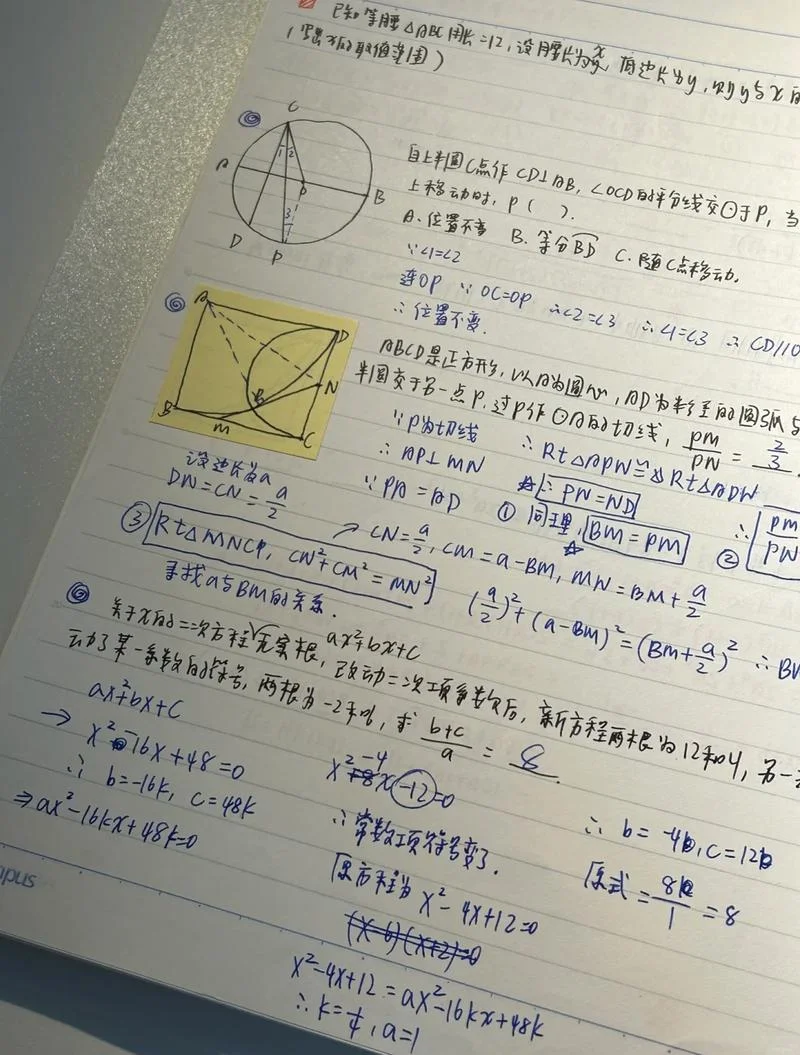 已知等腰△ABC周长=12,设腰长为x,底边长为y,则y与x的
(写出x的取值范围)
C
1 2
A
O
B
3
D
P
自上半圆C点作CD⊥AB,∠OCD的平分线交⊙于P,当
上移动时,P( ).
A.位置不变 B.等分BD C.随C点移动.
∵∠1=∠2
连OP ∵OC=OP ∴∠2=∠3 ∴∠1=∠3 ∴CD//O
∴位置不变.
A
D
N
B
M
C
ABCD是正方形,以A为圆心,AD为半径的圆弧与
半圆交于另一点P.过P作⊙A的切线, PM/PN = 2/3.
∵P为切线 ∴Rt△APN≌Rt△ADN
∴AP⊥MN ∴PN=ND
∵PA=AD ①同理,BM=PM
∴ PM/PN ②
设边长为a
DN=CN=a/2
③ Rt△MNC中, CN²+CM²=MN²
→ CN=a/2, CM=a-BM, MN=BM+a/2
寻找a与BM的关系.
(a/2)²+(a-BM)²=(BM+a/2)² ∴BM
关于x的二次方程无实根, ax²+bx+c
改动二次项系数后,新方程两根为12和4,另一
动了某一系数的符号,两根为-2和6,求 (b+c)/a = 8.
ax²+bx+c
→ x²-16x+48=0
∴ b=-16k, c=48k
⇒ax²-16kx+48k=0
x²-4x-12=0
∴常数项符号变了.
原方程为 x²-4x+12=0
(x-6)(x+2)=0
x²-4x+12=ax²-16kx+48k
∴k=1/4, a=1
∴ b=-4, c=12
原式=8/1=8
pus